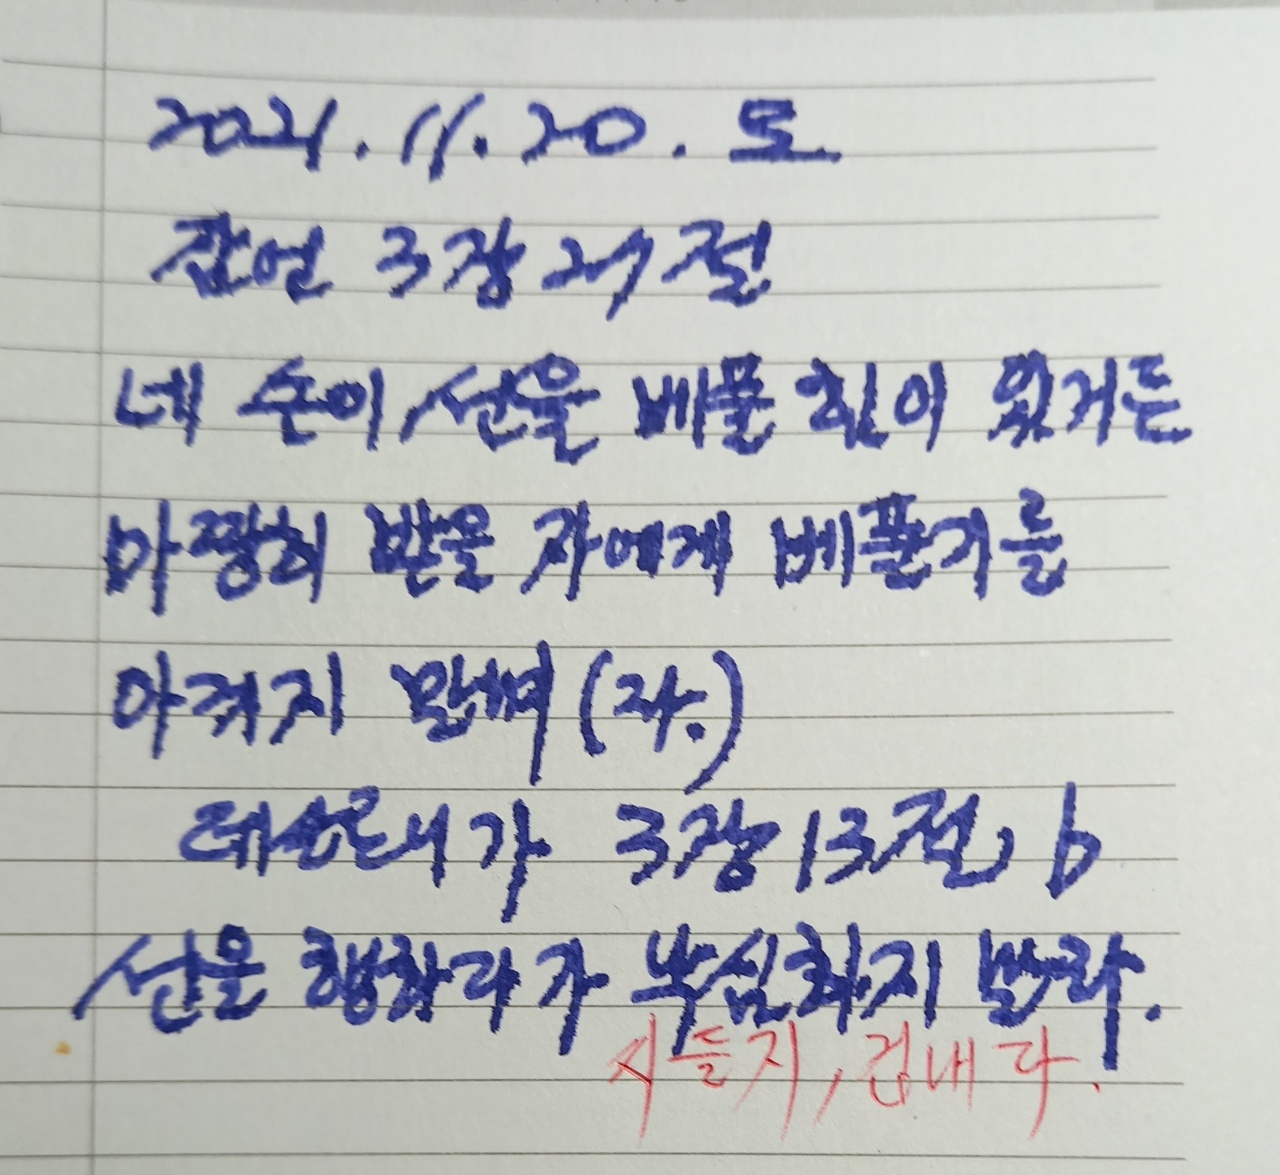 2021.11.20.토
잠언 3장 27절
네 손이 선을 베풀 힘이 있거든
마땅히 받을 자에게 베풀기를
아끼지 말며(라.)
데살로니가 3장 13절, b
선을 행하다가 낙심하지 말라.
시들지, 겁내다.